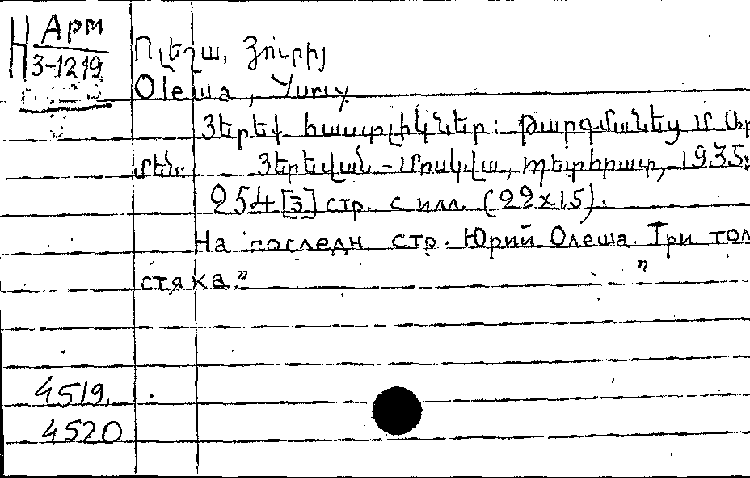 Н Арм
3-1219
Ոլեշա, Յուրիյ
Olewa, Yuriy
Յերեք հաստլիկներ: Թարգմանեց Մ. Ար
մեն. Յերեվան-Մոսկվա, Պետհրատ, 1935:
254 [3] стр. с илл. (22x15).
На последн. стр. Юрий Олеша. „Три тол
стяка.”
4519.
4520